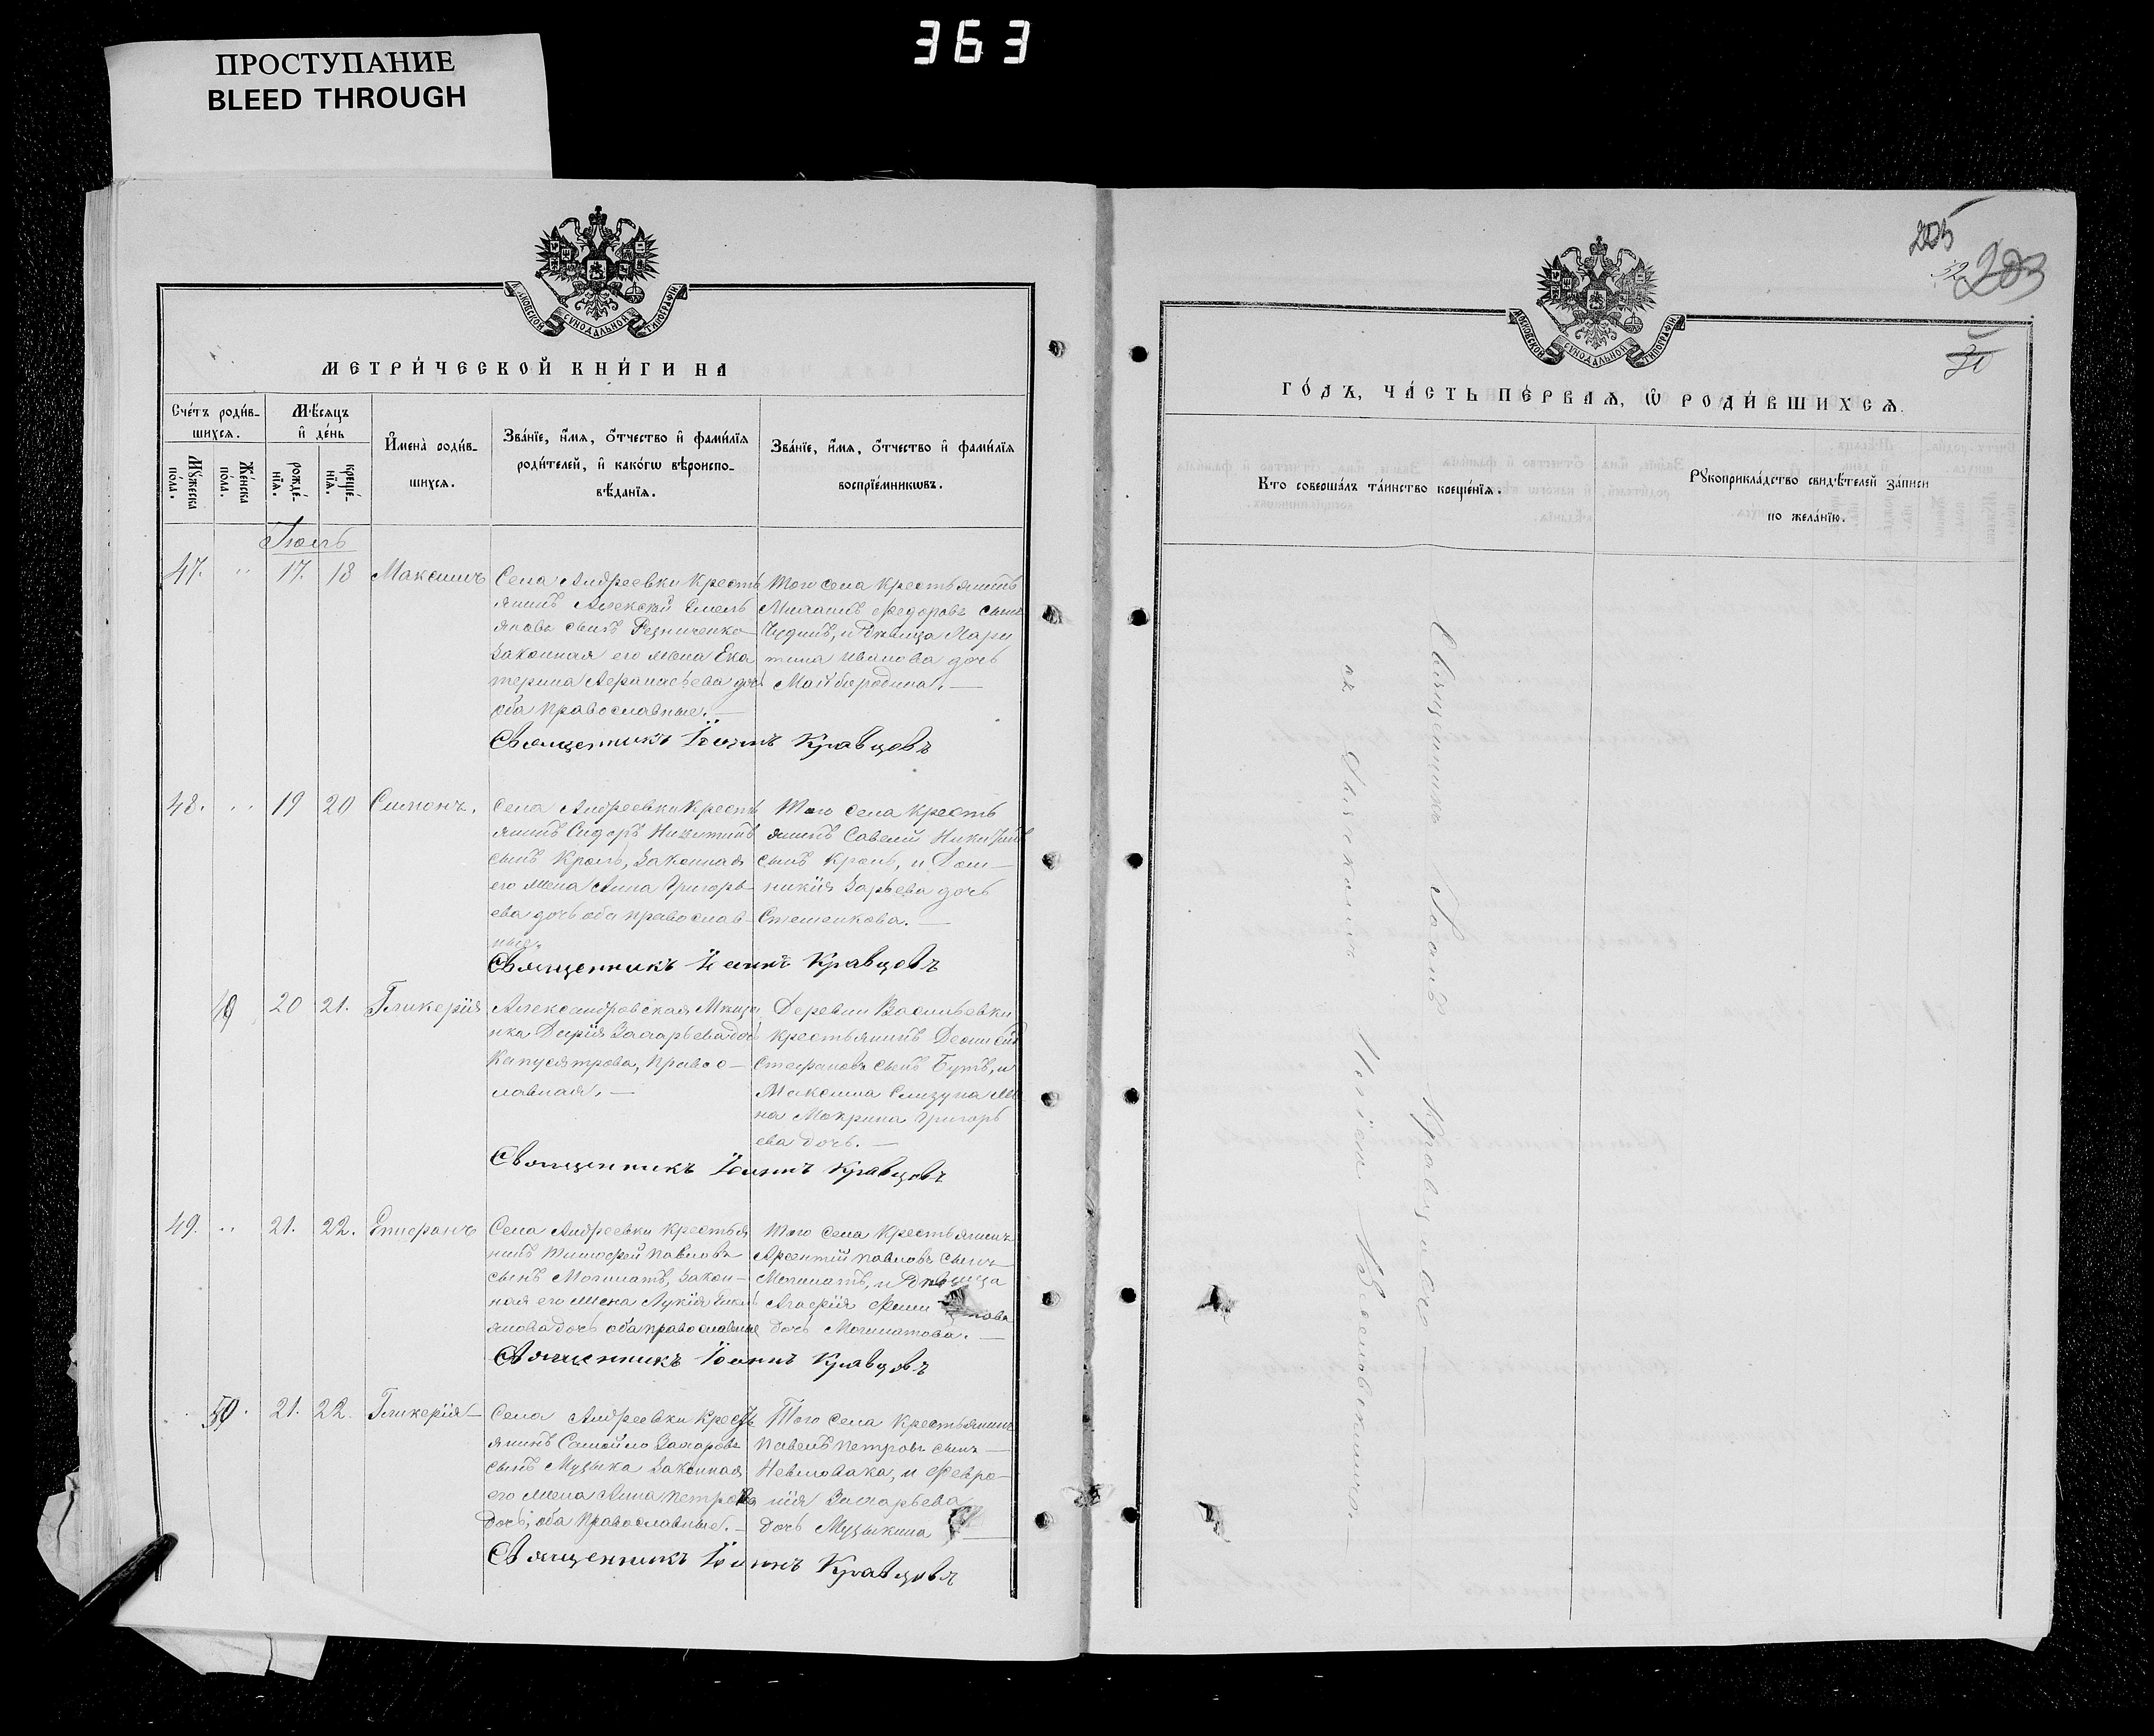 363
ПРОСТУПАНИЕ
BLEED THROUGH
МОСКОВСКОЙ СѴНОДАЛЬНОЙ ТИПОГРАФІИ
МЕТРИ́ЧЕСКОЙ КНИ́ГИ НА
Сче́тъ роди́в-
шихся.
Мꙋ́жеска по́ла.
Же́нска по́ла.
Мѣ́сяцъ
и҆ де́нь
рожде́-нїѧ.
креще́-нїѧ.
И҆мена̀ роди́в-
шихся.
Зва́нїе, и҆́мѧ, ѻ҆́тчество и҆ фами́лїѧ
роди́телей, и҆ како́гѡ вѣроиспо-
вѣ́данїѧ.
Зва́нїе, и҆́мѧ, ѻ҆́тчество и҆ фами́лїѧ
воспрїе́мникѡвъ.
Іюль
47. " 17. 18 Максимъ
Села Андреевки кресть
янинъ Алексей Емель
яновъ сынъ Резниченко
законная его жена Ека
терина Афанасьева дочь
оба православные. —
Того села крестьянинъ
Федоровъ сынъ
Чудинъ, и Девица Мари
Иванова дочь
Майбородина. —
Священникъ Іоаннъ Кравцовъ
48. " 19 20 Симонъ.
Села Андреевки кресть
янинъ Сидоръ Никитинъ
сынъ Кроль, законная
его жена Анна Григорь
ева дочь оба православ-
ные.
Того села кресть
янинъ Савелій Никитинъ
сынъ Кроль, и Дом—
никія дочь
Стешенкова. —
Священникъ Іоаннъ Кравцовъ
49 20 21. Гликерія
Александровская Мещан
ка Дарія Захарьева дочь
Правос—
лавная. —
Деревни Васильевки
крестьянинъ
Стефановъ сынъ Бутъ, и
Максима же
на Мокрина Григорь
ева дочь. —
Священникъ Іоаннъ Кравцовъ
49. " 21. 22. Епифанъ
Села Андреевки крестья
нинъ Тимофей Павловъ
сынъ Могилатъ, закон—
ная его жена Лукія Емель
янова дочь оба православные
Того села крестьянинъ
Арсентій Павловъ сынъ
Могилатъ, и Девица
Агафія
дочь Могилатова. —
Священникъ Іоаннъ Кравцовъ
50. 21. 22. Гликерія
Села Андреевки кресть
янинъ Самойло Захаровъ
сынъ Музыка законная
его жена Анна Петрова
дочь, оба православные. —
Того села крестьянинъ
Павелъ Петровъ сынъ —
и Февро—
нія Захарьева
дочь Музыкина
Священникъ Іоаннъ Кравцовъ
205
52
203
30
МОСКОВСКОЙ СѴНОДАЛЬНОЙ ТИПОГРАФІИ
ГО́ДЪ, ЧА́СТЬ ПЕ́РВАѦ, Ѡ҆ РОДИ́ВШИХСѦ.
Кто соверша́лъ та́инство креще́нїѧ.
Рꙋкоприкла́дство свидѣ́телей за́писи
по жела́нїю.
Священникъ Іоаннъ Кравцовъ съ